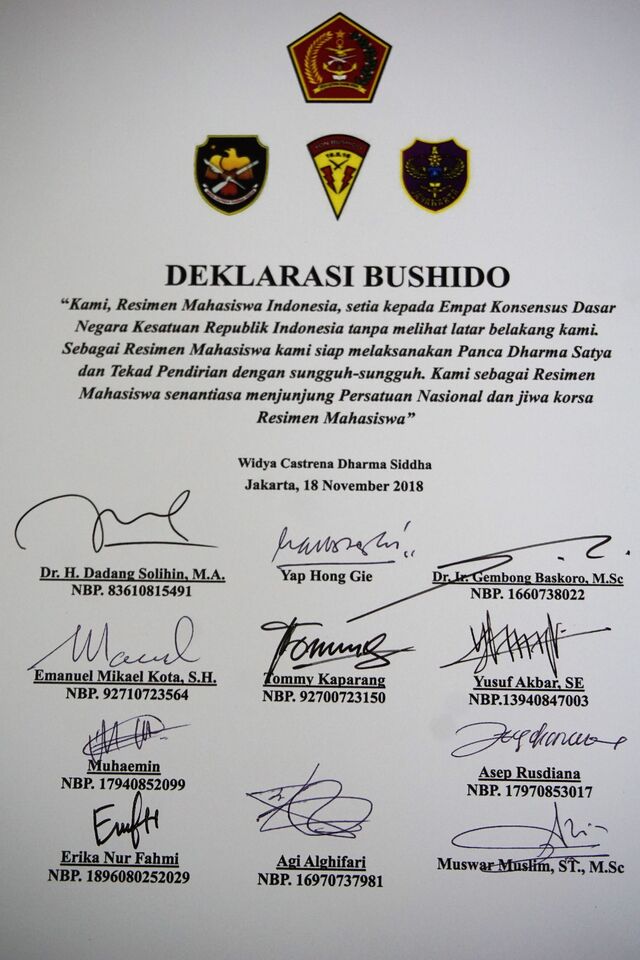 YON BUSHIDO
16.8.16
DEKLARASI BUSHIDO
“Kami, Resimen Mahasiswa Indonesia, setia kepada Empat Konsensus Dasar
Negara Kesatuan Republik Indonesia tanpa melihat latar belakang kami.
Sebagai Resimen Mahasiswa kami siap melaksanakan Panca Dharma Satya
dan Tekad Pendirian dengan sungguh-sungguh. Kami sebagai Resimen
Mahasiswa senantiasa menjunjung Persatuan Nasional dan jiwa korsa
Resimen Mahasiswa”
Widya Castrena Dharma Siddha
Jakarta, 18 November 2018
Dr. H. Dadang Solihin, M.A.
NBP. 83610815491
Yap Hong Gie
Dr. Ir. Gembong Baskoro, M.Sc
NBP. 1660738022
Emanuel Mikael Kota, S.H.
NBP. 92710723564
Tommy
Tommy Kaparang
NBP. 92700723150
Yusuf Akbar, SE
NBP.13940847003
Muhaemin
NBP. 17940852099
Asep Rusdiana
NBP. 17970853017
Erika Nur Fahmi
NBP. 1896080252029
Agi Alghifari
NBP. 16970737981
Muswar Muslim, ST., M.Sc